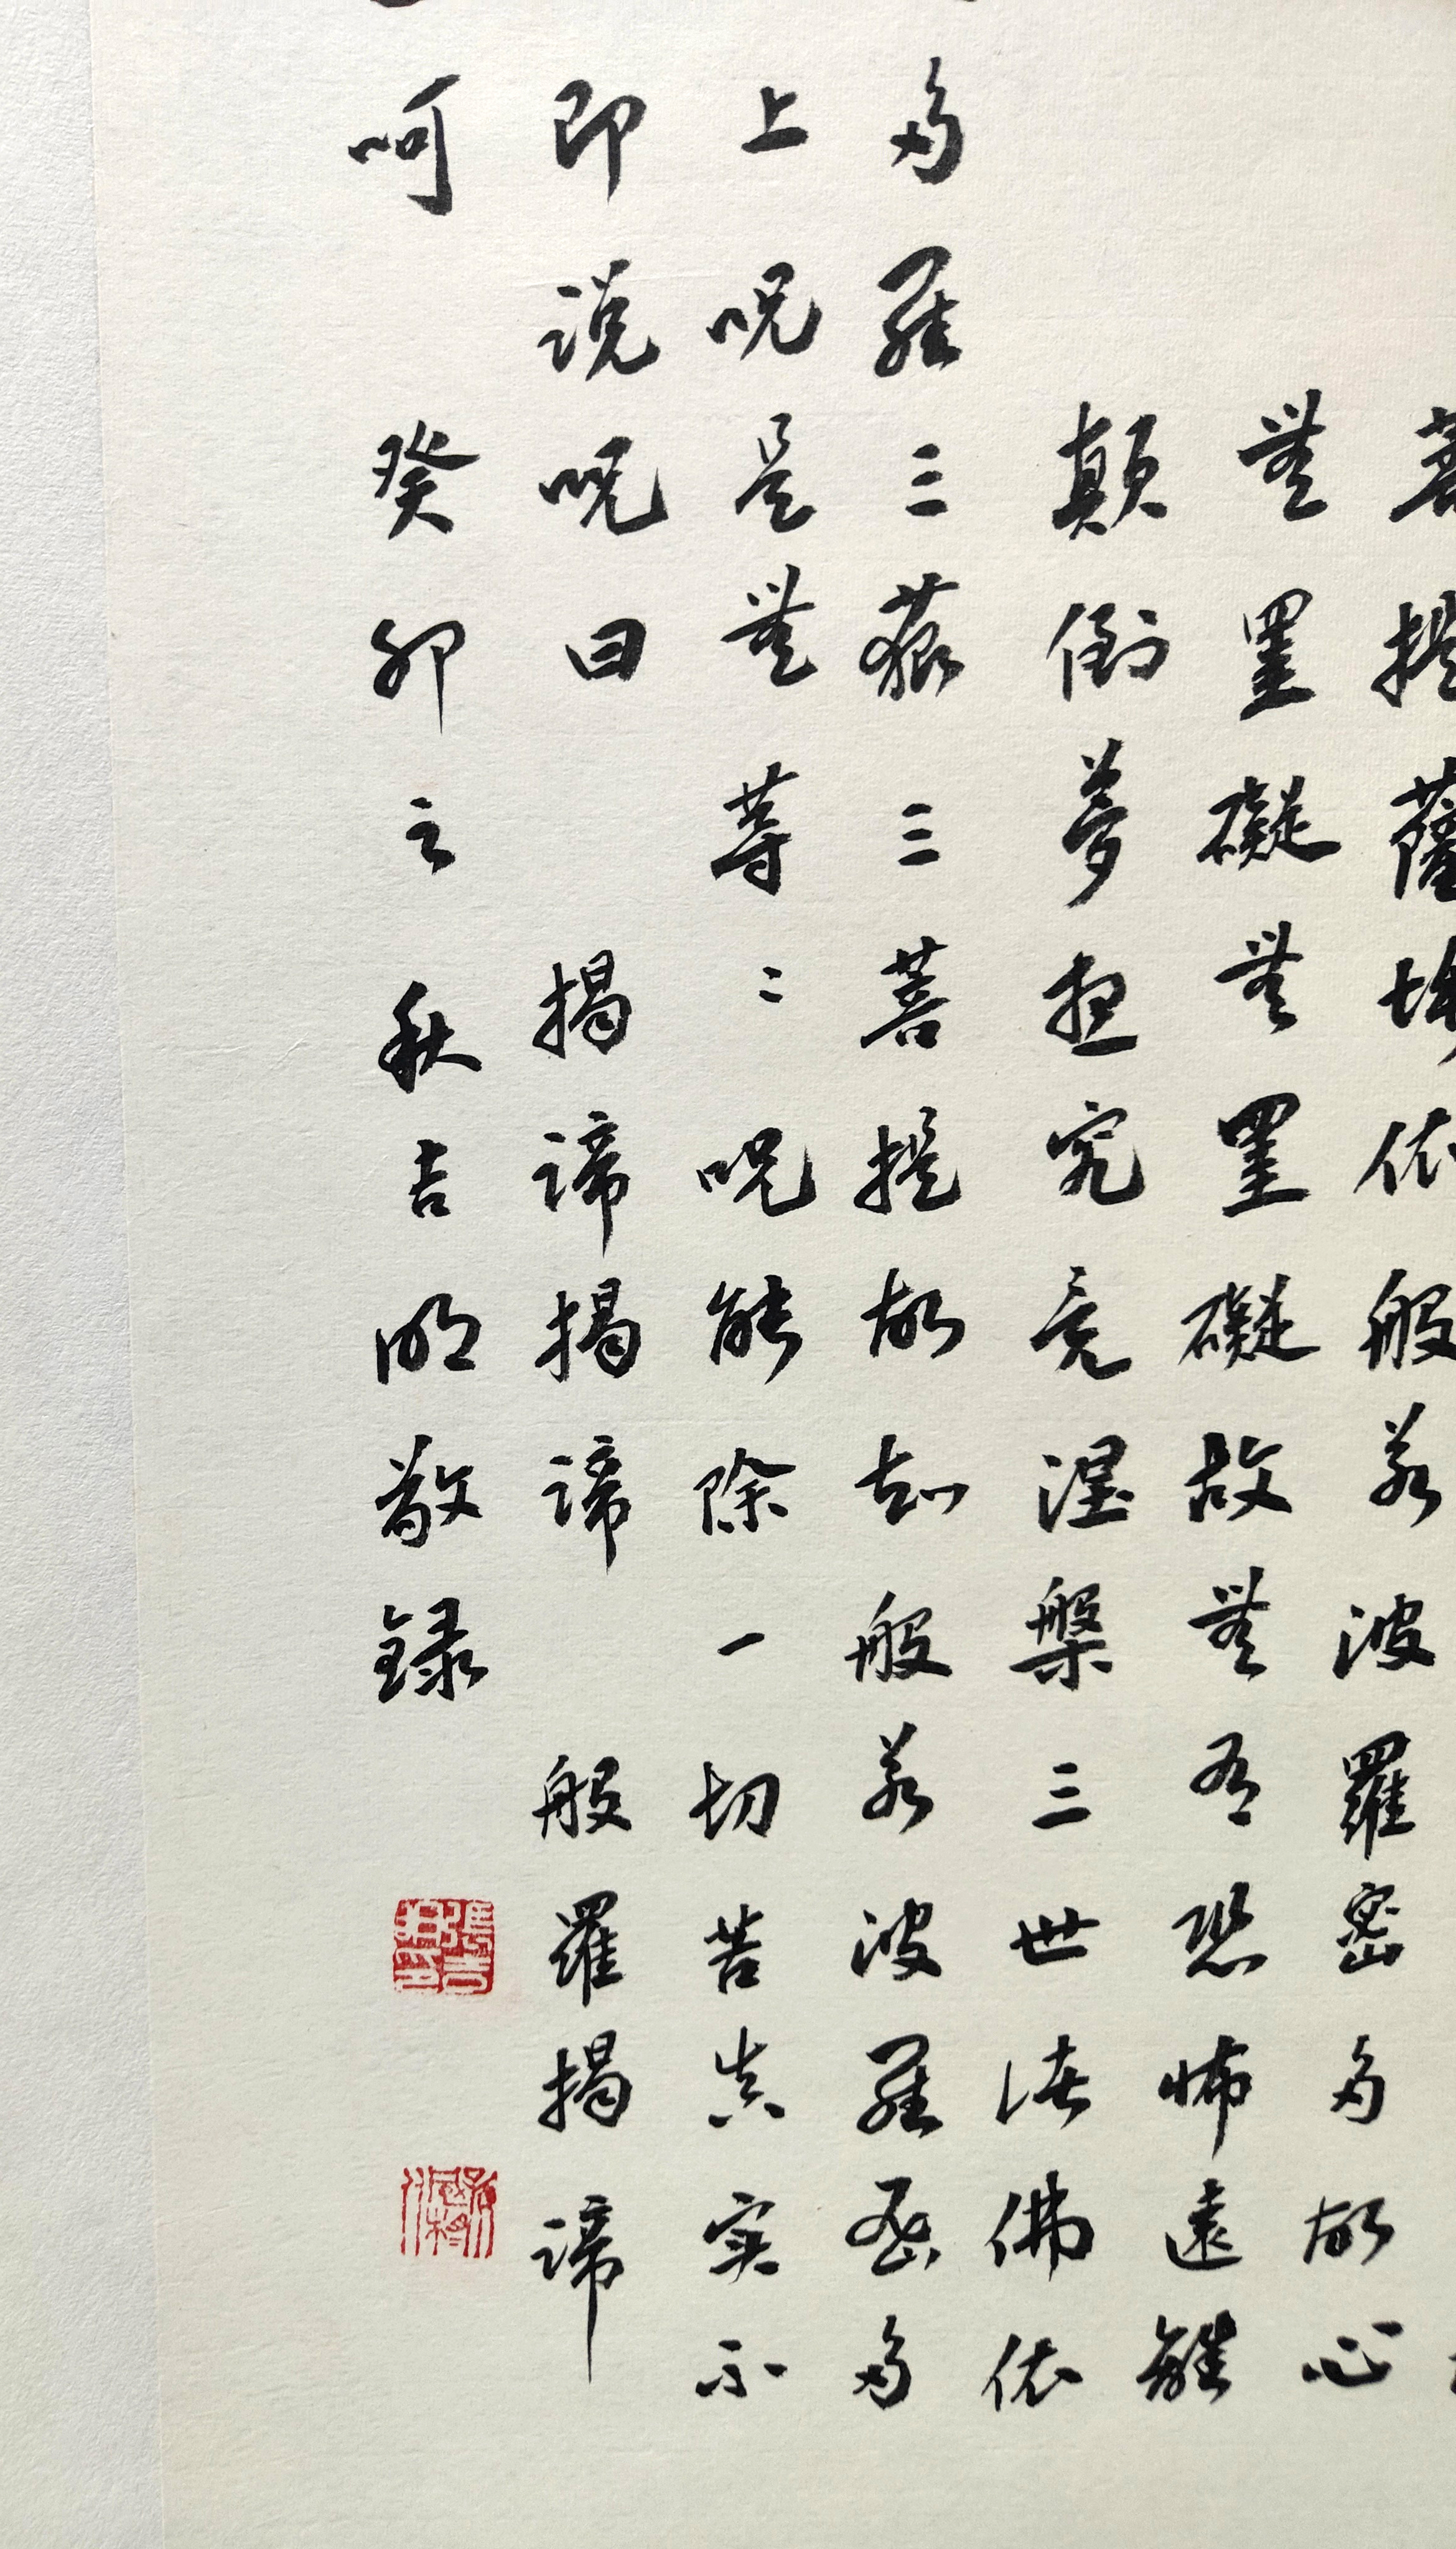 菩提薩埵依般若波羅密多故心
無罣礙無罣礙故無有恐怖遠離
顛倒夢想究竟涅槃三世諸佛依
多羅三藐三菩提故知般若波羅密多
上呪是無等〻呪能除一切苦真实不
即说呪曰 揭諦揭諦 般羅揭諦
呵 癸卯之秋吉明敬録